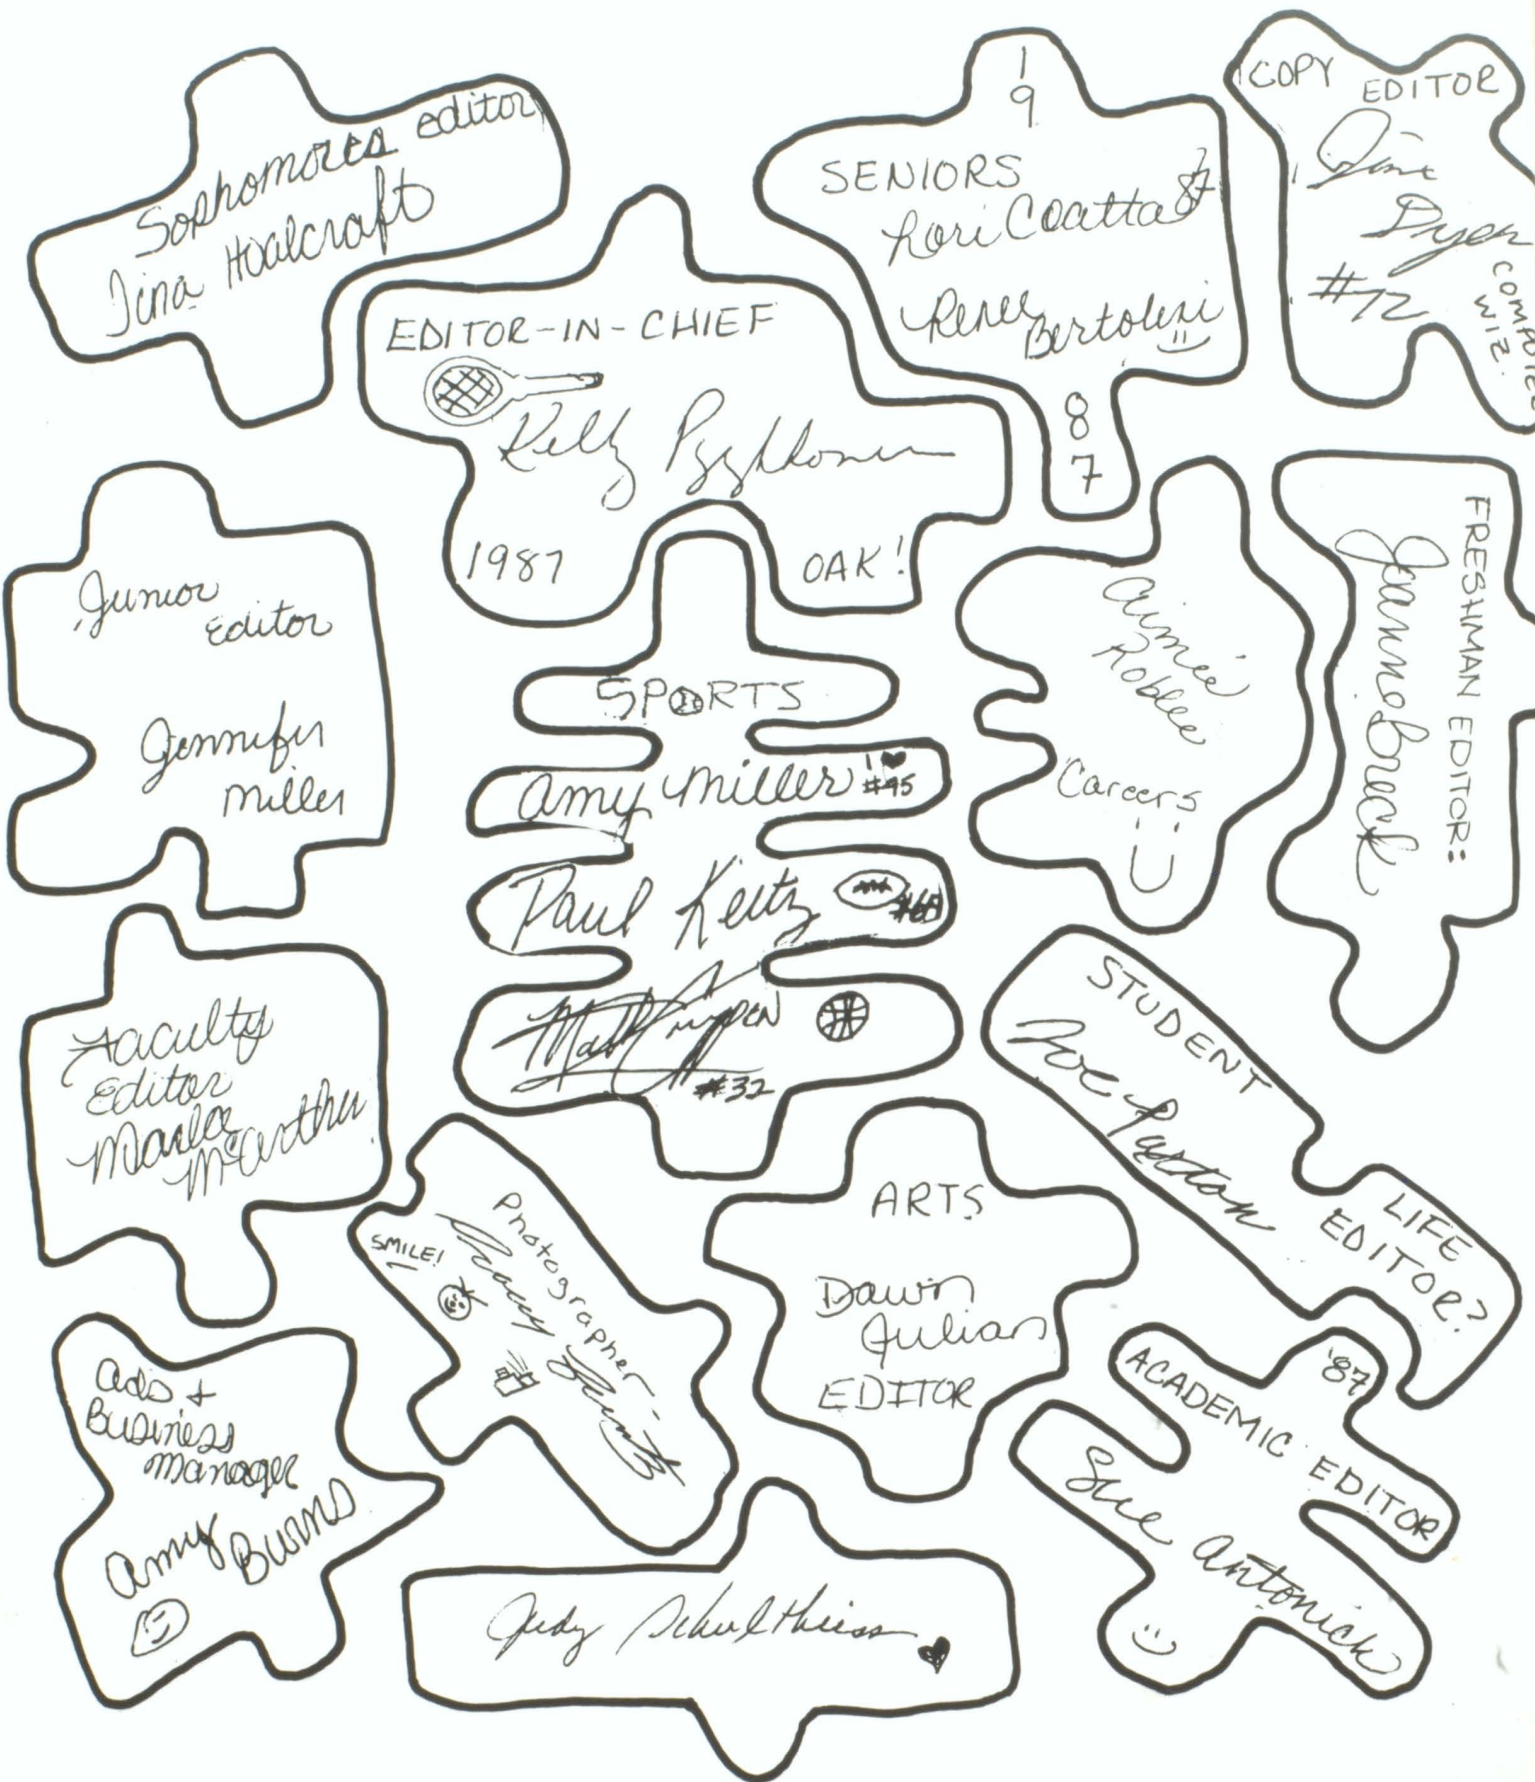 Sophomores editor
Tina Hoalcraft
1
9
SENIORS
Lori Coatta 87
Renee
Bertolini
8
7
COPY EDITOR
Jim
Dyer
#72
COMPUTER
WIZ.
EDITOR-IN-CHIEF
Kelly
1987
OAK!
Junior
Editor
Jennifer
Miller
SPORTS
Amy Miller I ♥
#45
Paul Keitz
Matt
#32
Aimée
Roblee
Careers
FRESHMAN EDITOR:
Jeanne Breck
Faculty
Editor
Marla
McArthur
Photographer
SMILE!
ARTS
Dawn
Julian
EDITOR
STUDENT
LIFE
EDITOR?
Zoe Patton
'87
ACADEMIC EDITOR
Sue Antonick
Ads +
Business
Manager
Amy Burns
Judy Schultheiss